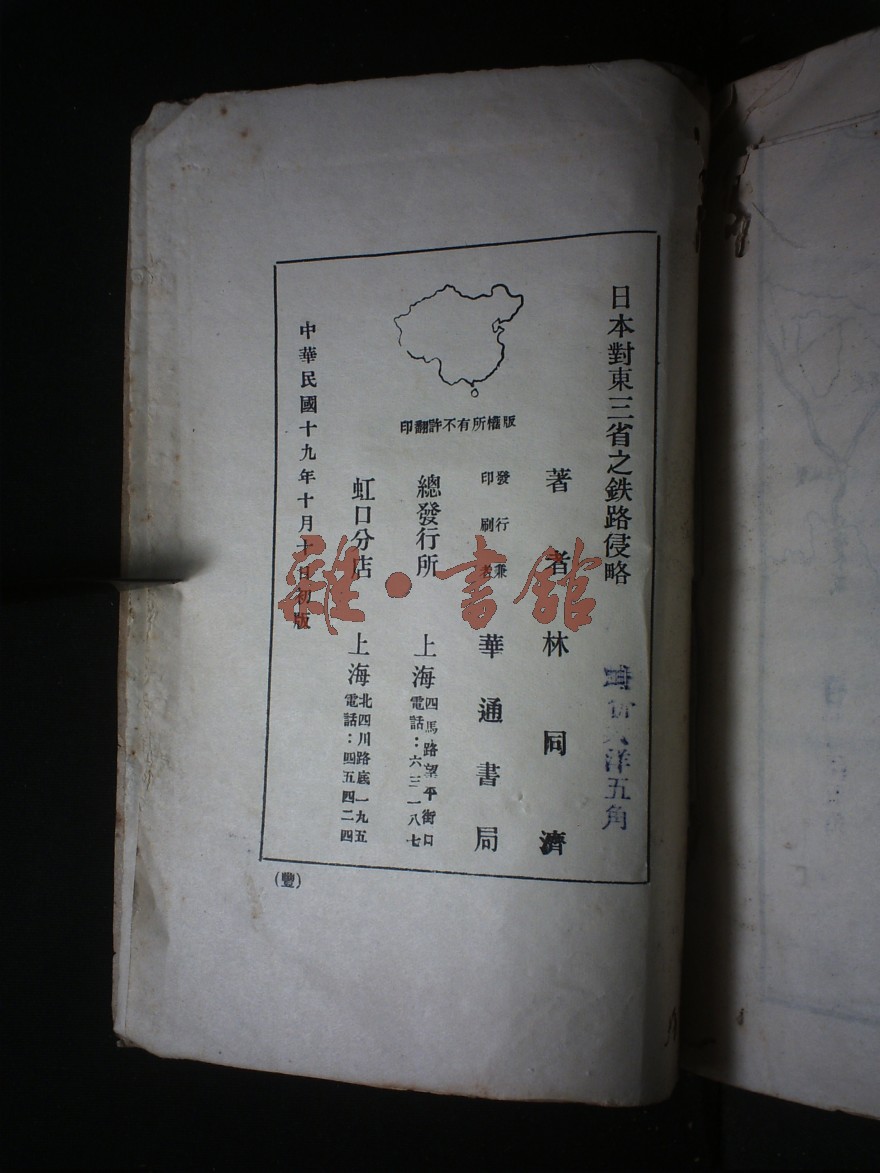 日本對東三省之鉄路侵略
時價大洋五角
著者 林同濟
發行兼
印刷者
華通書局
總發行所 上海
四馬路望平街口
電話：六三一八七
虹口分店 上海
北四川路底一九五
電話：四五四二四
版權所有不許翻印
中華民國十九年十月十日初版
(豐)
雜·書館